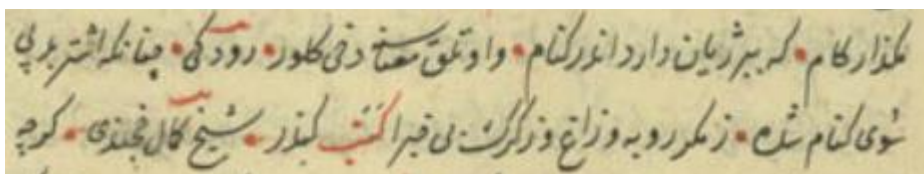 مگذار کام • که ببر ژیان دارد اندر کنام • و او تلق دخی کلور • رودکی • چنانکه اشتر بلهی
سوی کنام شده • ز مکر روبه و زاغ و ز کرک بی خبرا کنب کبذر • شیخ کمال خجندی • کرچه